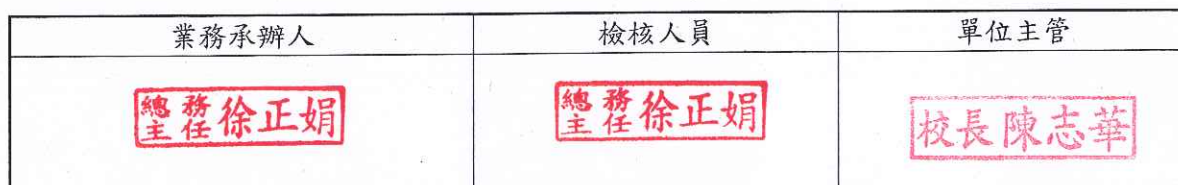 業務承辦人
檢核人員
單位主管
總務主任徐正娟
總務主任徐正娟
校長陳志華